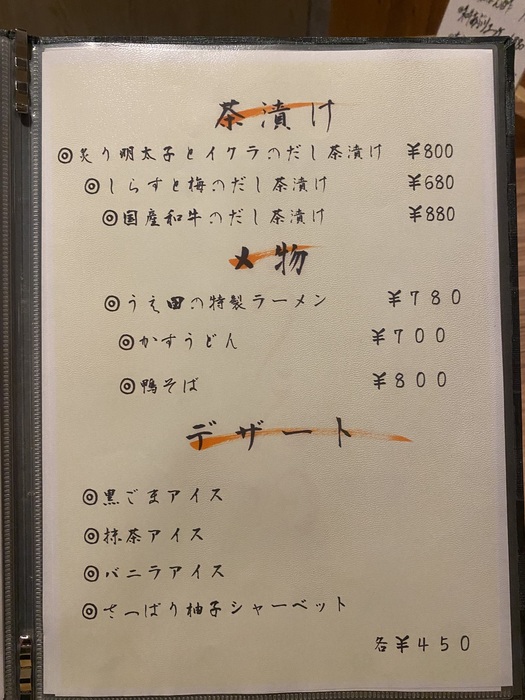 茶漬け
◎炙り明太子とイクラのだし茶漬け ¥800
◎しらすと梅のだし茶漬け ¥680
◎国産和牛のだし茶漬け ¥880
〆物
◎うえ田の特製ラーメン ¥780
◎かすうどん ¥700
◎鴨そば ¥800
デザート
◎黒ごまアイス
◎抹茶アイス
◎バニラアイス
◎さっぱり柚子シャーベット
各¥450